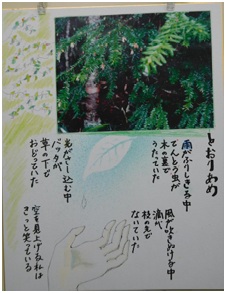 とおりあめ
雨がふりしきる中
てんとう虫が
木の裏で
うたっていた
風が吹きぬける中
滴が
枝の先で
ないていた
光がさし込む中
バッタが
草の下で
おどっていた
空を見上げる私は
きっと笑っている